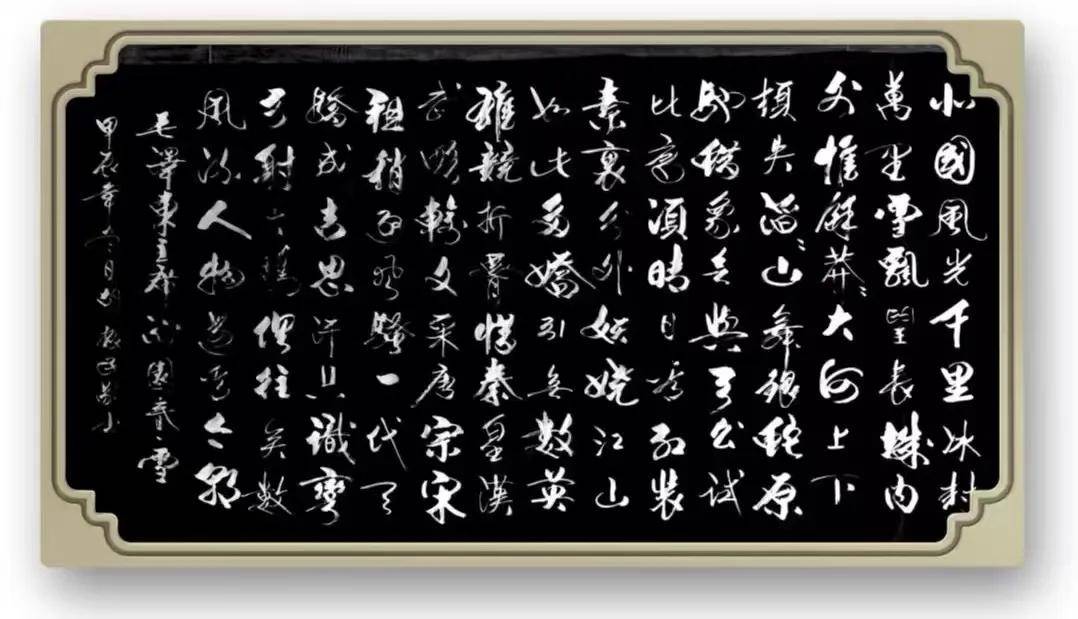 北國風光千里冰封
萬里雪飄望長城內
外惟餘莽〻大河上下
頓失滔〻山舞銀蛇原
馳蠟象欲與天公試
比高須晴日看紅裝
素裹分外妖嬈江山
如此多嬌引無數英
雄競折腰惜秦皇漢
武略輸文采唐宗宋
祖稍遜風騷一代天
驕成吉思汗只識彎
弓射大雕俱往矣數
風流人物還看今朝
毛澤東主席沁園春雪
甲辰年月